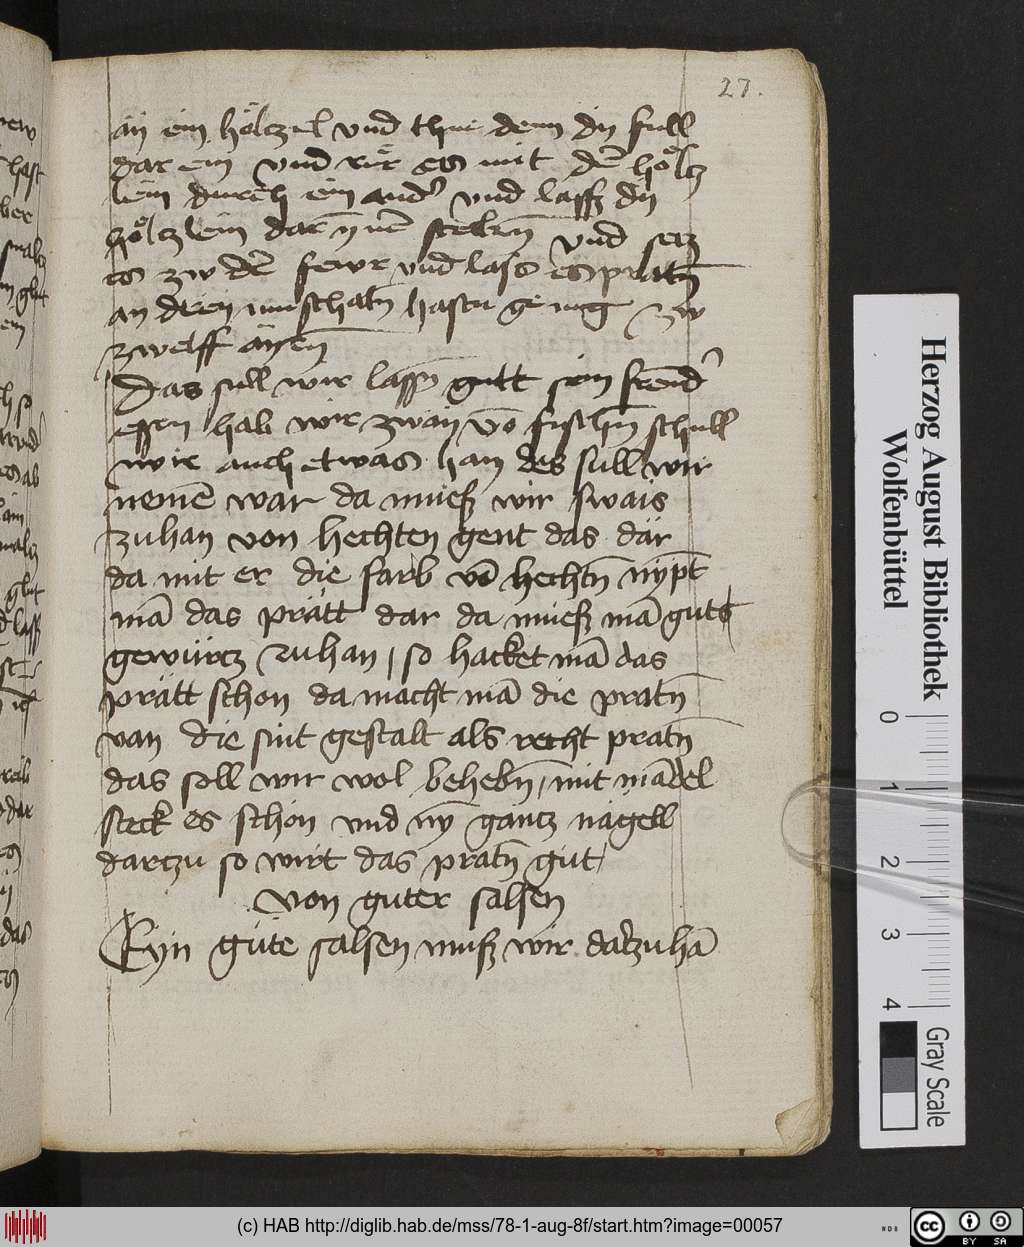 27.
än ein höltzel vnd thue denn dÿ full
dar ein vnd rür es mit dē höltz
lein durch ein and' vnd lassz dÿ
höltzlein dar ȳnē steckn̄ vnd setz
es zw dē fewr vnd lass es pratn̄
an dein hastu genug zw
zwelff aÿen̄
Das sull wir lassn̄ gutt sein frend'
essen hab wir zwaÿ vō fischn̄ schull
wir auch etwas han des sull wir
nemē war da muesz wir swais
zuhan von hechten gent das där
da mit er die farb vō hechtn̄ nÿpt
mā das prätt dar da muesz mā guts
gewürtz zuhan / so hacket mā das
prätt schon da macht mā die pratn̄
van die sint gestalt als recht pratn̄
das soll wir wol behebn̄ / mit mādel
steck es schön vnd nȳ gantz nägell
dartzu so wirt das pratn̄ gut /
von guter salsen
Eyn güte salsen musz wir datzuhā
Herzog August Bibliothek
Wolfenbüttel
0 1 2 3 4
Gray Scale
(c) HAB http://diglib.hab.de/mss/78-1-aug-8f/start.htm?image=00057
WDB
cc BY SA